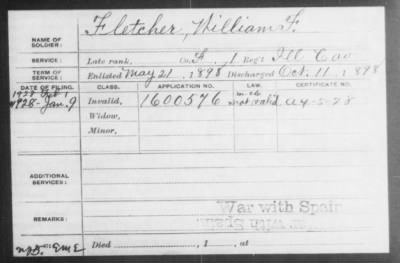 Fletcher, William F.
NAME OF
SOLDIER:
SERVICE: Late rank, Co. A, 1 Reg't Ill Cav
TERM OF
SERVICE: Enlisted May 21, 1898 Discharged Oct. 11, 1898
DATE OF FILING. CLASS. APPLICATION NO. LAW. CERTIFICATE NO.
1928-Jan. 9 Invalid, 1600576
Widow,
Minor,
ADDITIONAL
SERVICES:
REMARKS:
War with Spain
War with Spain
Died , 1 , at